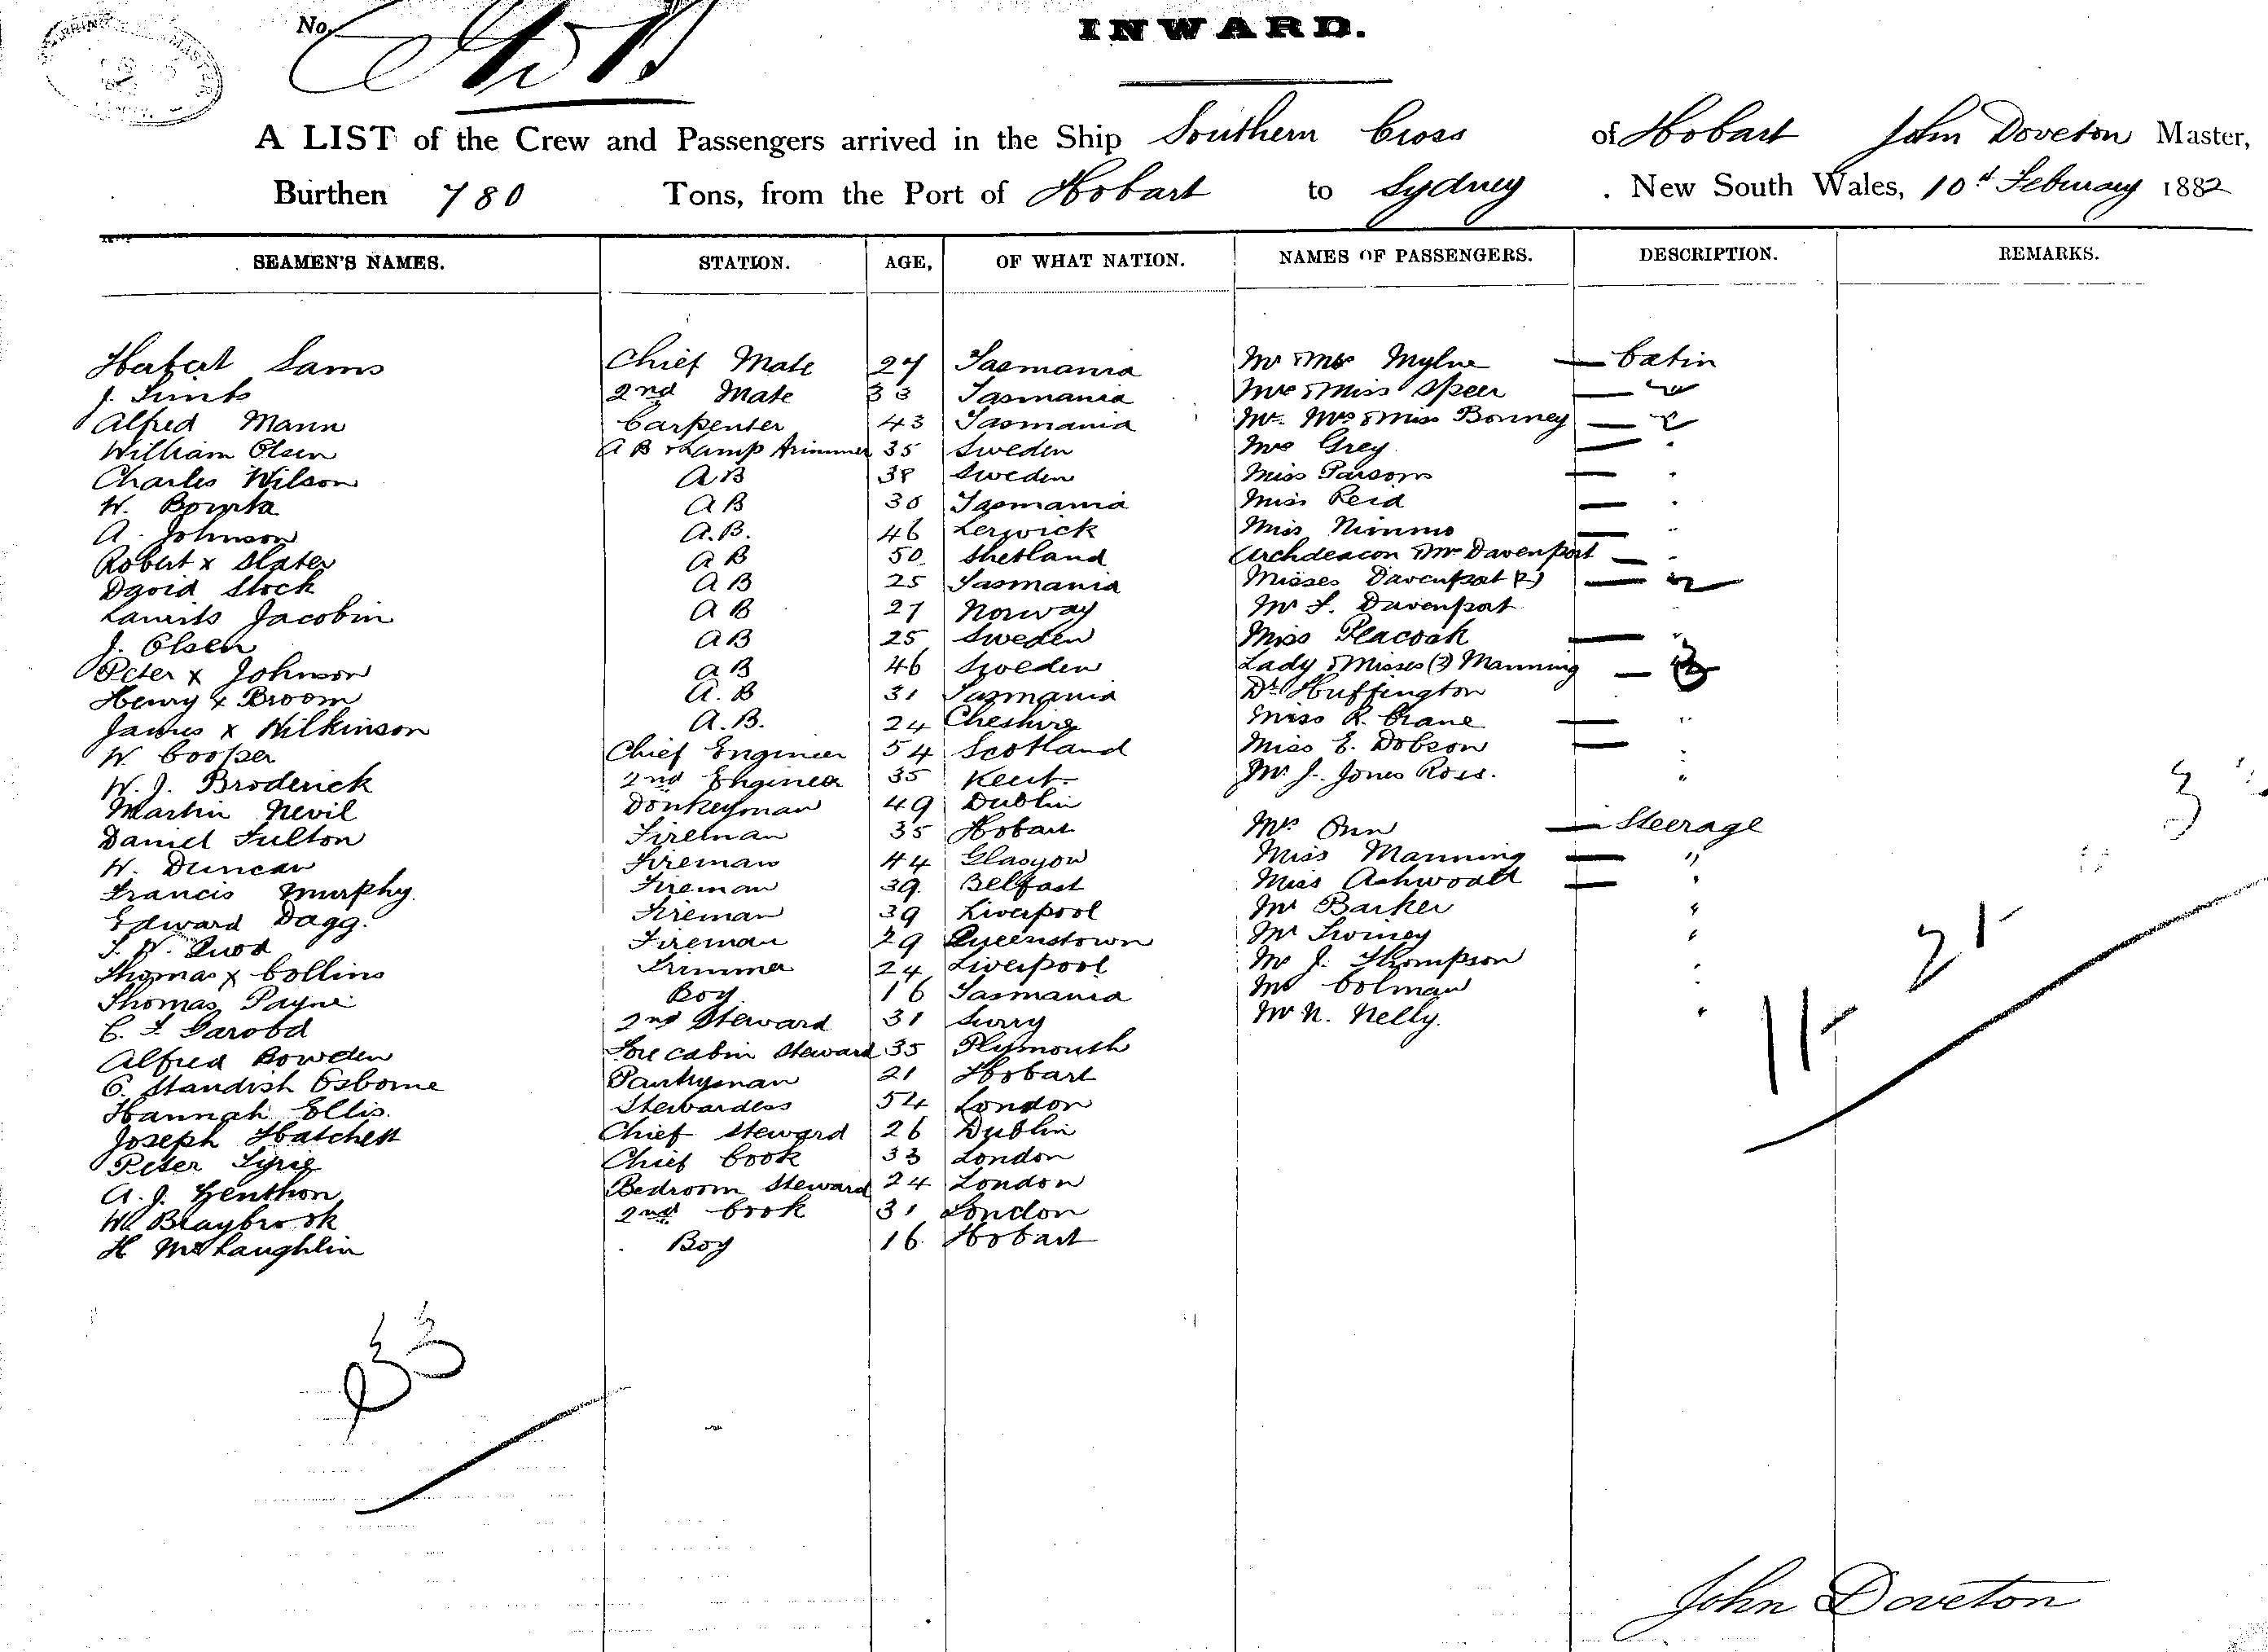 No.
INWARD.
A LIST of the Crew and Passengers arrived in the Ship Southern Cross of Hobart John Doveton Master,
Burthen 780 Tons, from the Port of Hobart to Sydney . New South Wales, 10th February 1882
SEAMEN'S NAMES. STATION. AGE, OF WHAT NATION. NAMES OF PASSENGERS. DESCRIPTION. REMARKS.
Herbert Sams Chief Mate 27 Tasmania Mr & Mrs Mylne — Cabin
J. 2nd Mate 33 Tasmania Mrs & Miss Speer —
Alfred Mann Carpenter 43 Tasmania Mr. Mrs & Miss Bonney —
William Olsen A B & Lamp trimmer 35 Sweden Mrs Grey —
Charles Wilson A B 38 Sweden Miss Parsons —
W. A B 30 Tasmania Miss Reid —
A. Johnson A.B. 46 Lerwick Miss Nimmo — "
Robert x Slater A B 50 Shetland Archdeacon & Mrs Davenport —
David Stock A B 25 Tasmania Misses Davenport (2) —
Laurits Jacobin A B 27 Norway Mr S. Davenport
J. Olsen A B 25 Sweden Miss Peacock — "
Peter x Johnson A B 46 Sweden Lady & Misses (3) Manning — 3
Henry x Broom A.B 31 Tasmania Dr Huffington
James x Wilkinson A.B. 24 Cheshire Miss R. Crane — "
W. Cooper Chief Engineer 54 Scotland Miss E. Dobson — "
W. J. Broderick 2nd Engineer 35 Kent Mr J. Jones Ross. "
Martin Nevil Donkeyman 49 Dublin
Daniel Fulton Fireman 35 Hobart Mrs Orr — Steerage
W. Duncan Fireman 44 Glasgow Miss Manning — "
Francis Murphy. Fireman 39 Belfast Miss — "
Edward Dagg. Fireman 39 Liverpool Mr Barker "
Fireman 29 Queenstown Mr Swiney "
Thomas x Collins Trimmer 24 Liverpool Mr J. Thompson "
Thomas Payne Boy 16 Tasmania Mr Colman "
2nd Steward 31 Surry Mr N. Nelly. "
Alfred Bowden Fore cabin Steward 35 Plymouth
C. Standish Osborne Pantryman 21 Hobart
Hannah Ellis. Stewardess 54 London
Joseph Hatchett Chief Steward 26 Dublin
Peter Chief Cook 33 London
A. J. Bedroom Steward 24 London
Wm Braybrook 2nd Cook 31 London
H McLaughlin Boy 16 Hobart
33
21
11
John Doveton